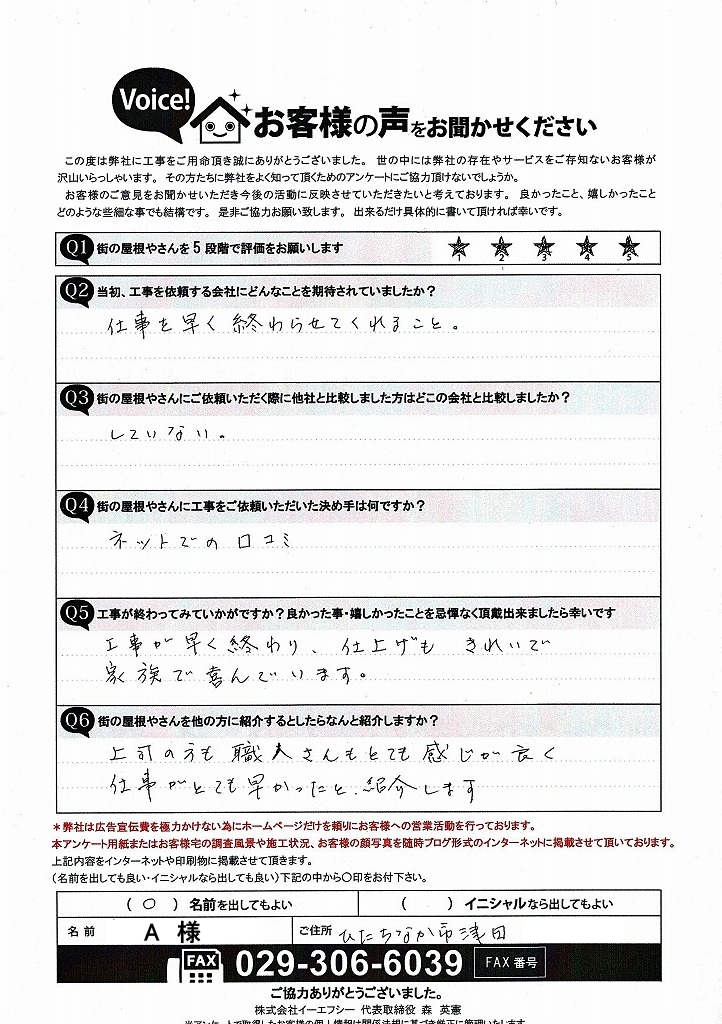 Voice!
お客様の声をお聞かせください
この度は弊社に工事をご用命頂き誠にありがとうございました。 世の中には弊社の存在やサービスをご存知ないお客様が
沢山いらっしゃいます。 その方たちに弊社をよく知って頂くためのアンケートにご協力頂けないでしょうか。
お客様のご意見をお聞かせいただき今後の活動に反映させていただきたいと考えております。 良かったこと、嬉しかったこと
どのような些細な事でも結構です。 是非ご協力お願い致します。 出来るだけ具体的に書いて頂ければ幸いです。
Q1 街の屋根やさんを5段階で評価をお願いします
1 2 3 4 5
Q2 当初、工事を依頼する会社にどんなことを期待されていましたか？
仕事を早く終わらせてくれること。
Q3 街の屋根やさんにご依頼いただく際に他社と比較しました方はどこの会社と比較しましたか？
していない。
Q4 街の屋根やさんに工事をご依頼いただいた決め手は何ですか？
ネットでの口コミ
Q5 工事が終わってみていかがですか？良かった事・嬉しかったことを忌憚なく頂戴出来ましたら幸いです
工事が早く終わり、仕上げも きれいで
家族で喜んでいます。
Q6 街の屋根やさんを他の方に紹介するとしたらなんと紹介しますか？
上司の方も職人さんもとても感じが良く
仕事がとても早かったと、紹介します
＊弊社は広告宣伝費を極力かけない為にホームページだけを頼りにお客様への営業活動を行っております。
本アンケート用紙またはお客様宅の調査風景や施工状況、お客様の顔写真を随時ブログ形式のインターネットに掲載させて頂いております。
上記内容をインターネットや印刷物に掲載させて頂きます。
（名前を出しても良い・イニシャルなら出しても良い）下記の中から〇印をお付下さい。
（ 〇 ） 名前を出してもよい （ ） イニシャルなら出してもよい
名前 A 様 ご住所 ひたちなか市津田
FAX 029-306-6039 FAX 番号
ご協力ありがとうございました。
株式会社イーエフシー 代表取締役 森 英憲
※アンケートで取得したお客様の個人情報は関係法規に基づき厳正に管理いたします